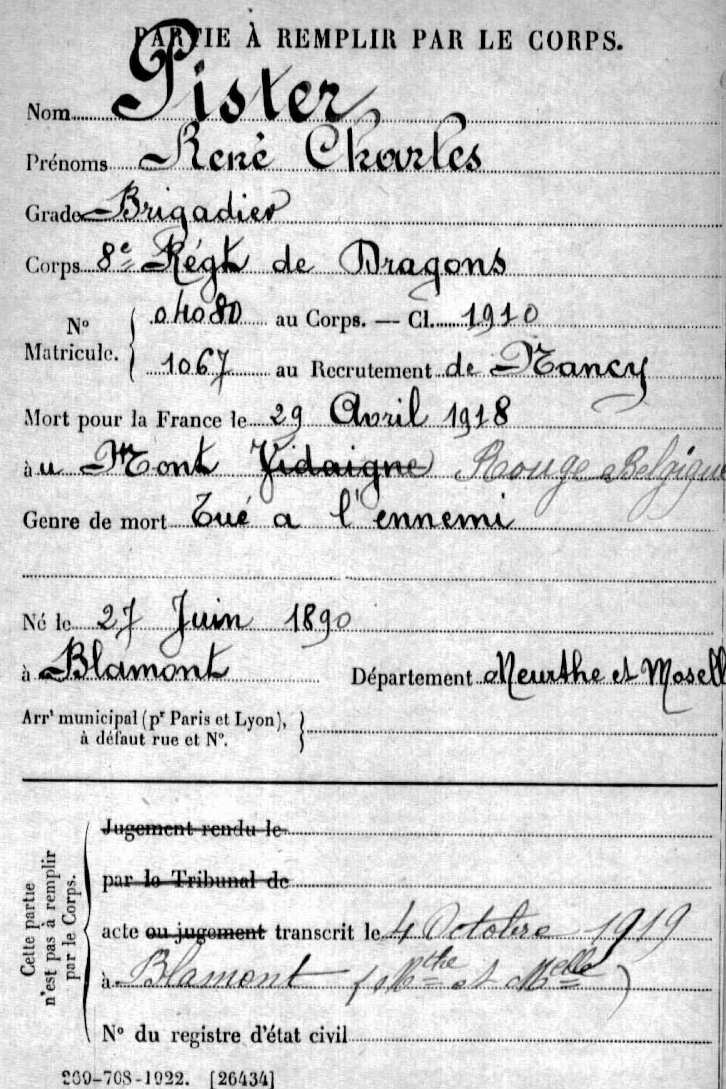 PARTIE À REMPLIR PAR LE CORPS.
Nom Pister
Prénoms René Charles
Grade Brigadier
Corps 8e Régt de Dragons
No
Matricule.
04080 au Corps. — Cl. 1910
1067 au Recrutement de Nancy
Mort pour la France le 29 Avril 1918
à u Mont Vidaigne Rouge Belgique
Genre de mort Tué a l'ennemi
Né le 27 Juin 1890
à Blamont Département Meurthe et Mosell
Arrt municipal (pr Paris et Lyon),
à défaut rue et No.
Cette partie
n'est pas à remplir
par le Corps.
Jugement rendu le
par le Tribunal de
acte ou jugement transcrit le 4 Octobre 1919
à Blamont (Mthe et Melle)
No du registre d'état civil
269-708-1922. [26434]